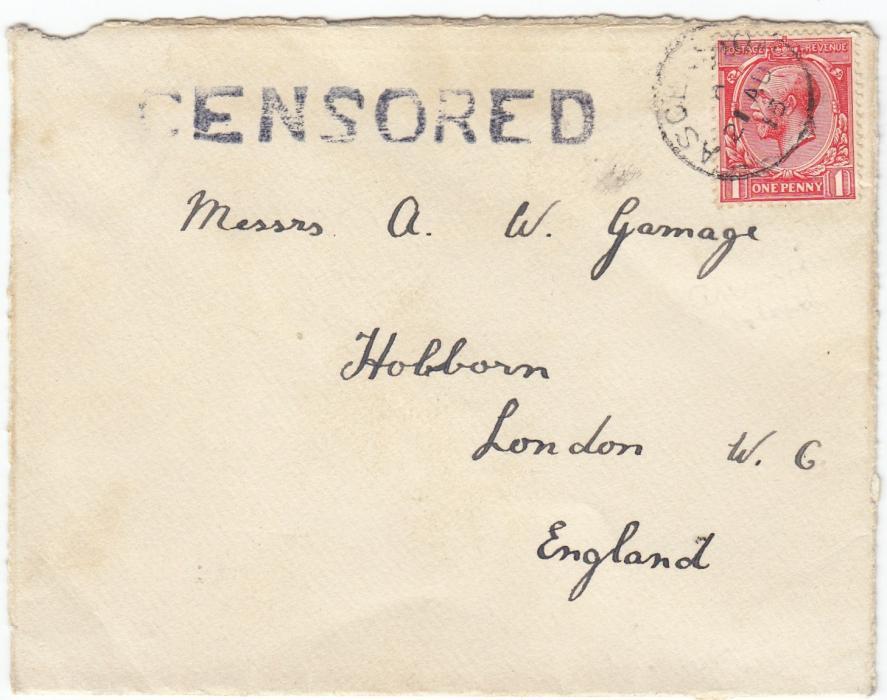 CENSORED
POSTAGE REVENUE
ASCENSION
21 AU
15
1 ONE PENNY 1
Messrs A. W. Gamage
Holborn
London W. C
England